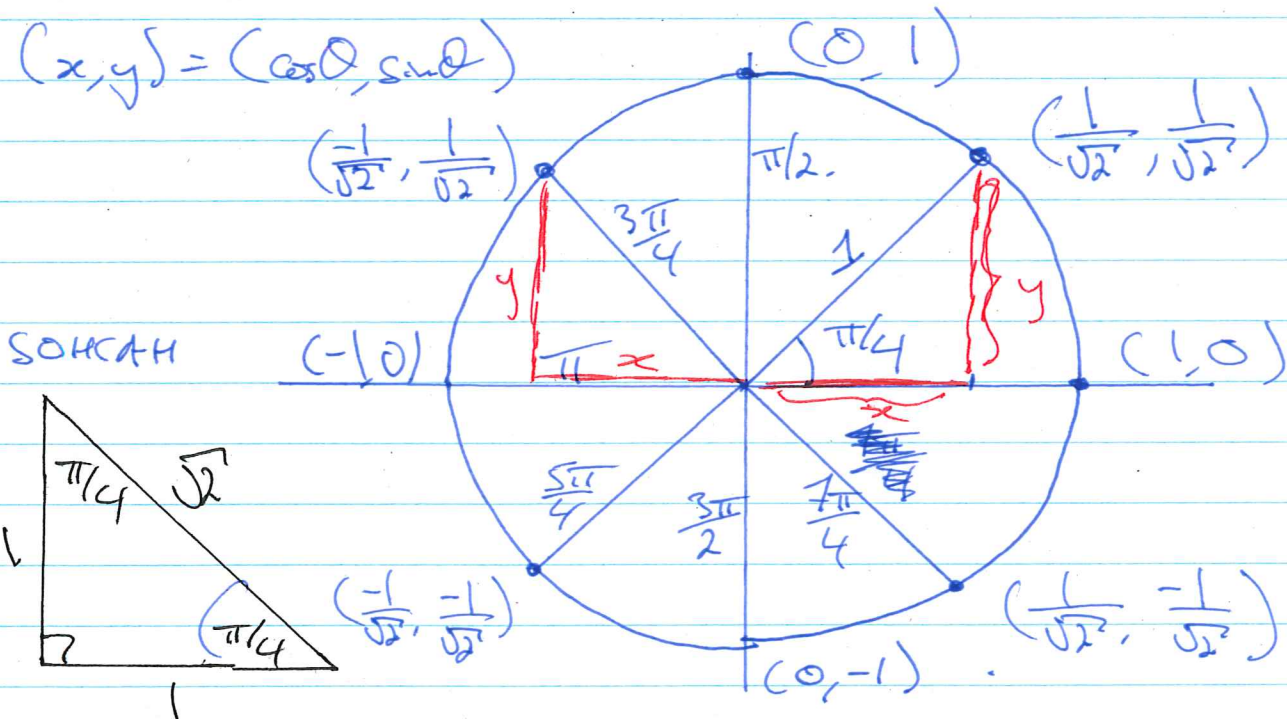 (x,y) = (cosθ, sinθ)
(0, 1)
(-1/√2, 1/√2)
π/2.
(1/√2, 1/√2)
3π/4
1
y
y
π/4
SOHCAH
(-1,0)
π
x
(1,0)
x
π/4
√2
5π/4
3π/2
7π/4
1
(-1/√2, -1/√2)
(1/√2, -1/√2)
π/4
(0,-1)
1